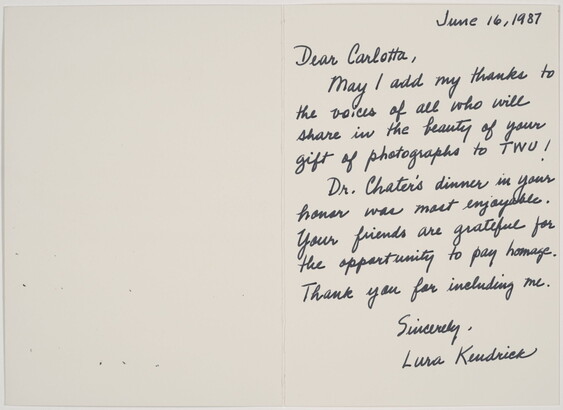 June 16, 1987
Dear Carlotta,
May I add my thanks to
the voices of all who will
share in the beauty of your
gift of photographs to TWU!
Dr. Chater's dinner in your
honor was most enjoyable.
Your friends are grateful for
the opportunity to pay homage.
Thank you for including me.
Sincerely,
Lura Kendrick